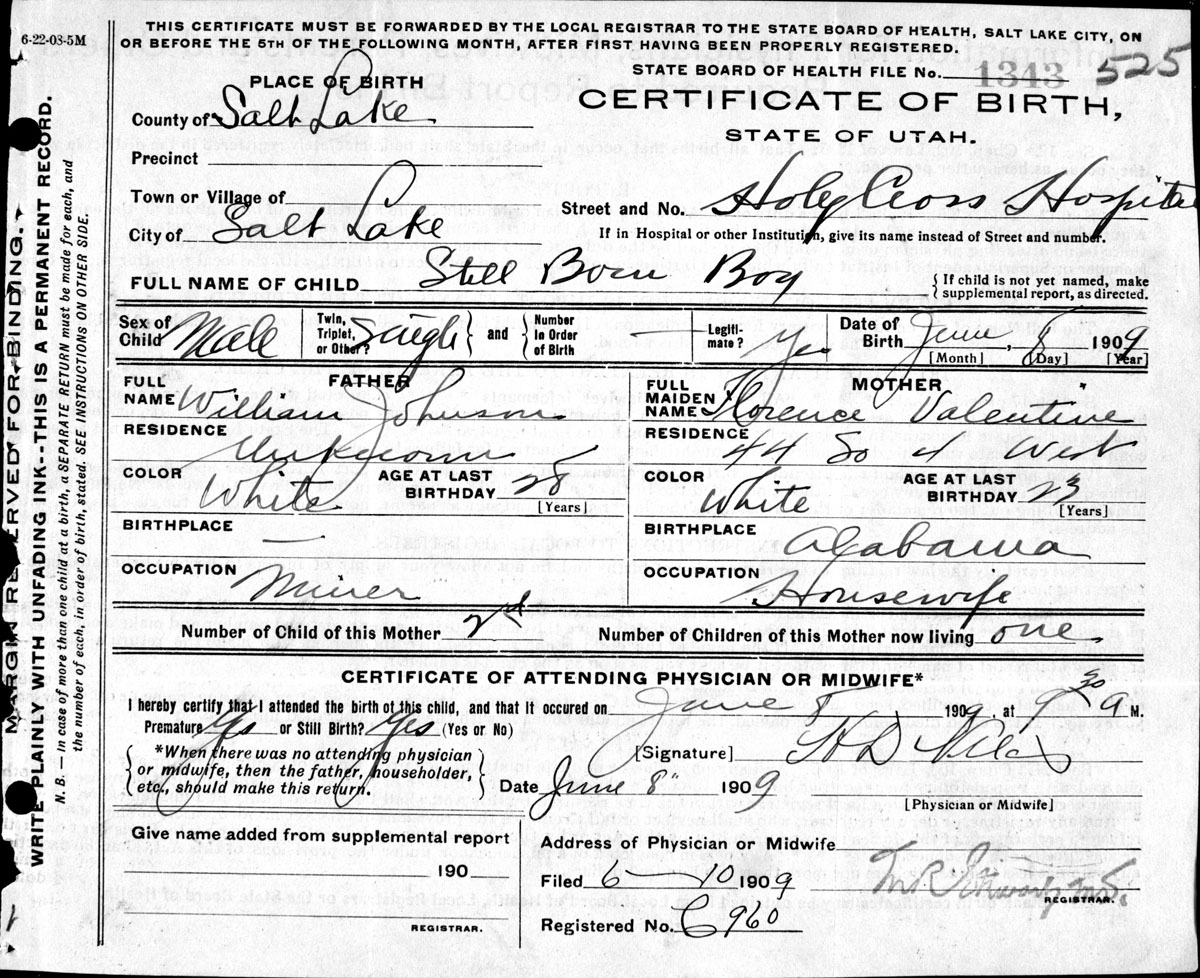 6-22-08-5M
THIS CERTIFICATE MUST BE FORWARDED BY THE LOCAL REGISTRAR TO THE STATE BOARD OF HEALTH, SALT LAKE CITY, ON
OR BEFORE THE 5TH OF THE FOLLOWING MONTH, AFTER FIRST HAVING BEEN PROPERLY REGISTERED.
STATE BOARD OF HEALTH FILE No. 1343 525
CERTIFICATE OF BIRTH,
STATE OF UTAH.
PLACE OF BIRTH
County of Salt Lake
Precinct
Town or Village of
City of Salt Lake
Street and No. Holy Cross Hospital
If in Hospital or other Institution, give its name instead of Street and number.
FULL NAME OF CHILD Still Born Boy
{If child is not yet named, make supplemental report, as directed.
Sex of Child Male
Twin, Triplet, or Other? Single
and
Number in Order of Birth
Legitimate? Yes
Date of Birth June, 8 1909
[Month] [Day] [Year]
FATHER
FULL NAME William Johnson
RESIDENCE Unknown
COLOR White
AGE AT LAST BIRTHDAY 28
[Years]
BIRTHPLACE —
OCCUPATION Miner
MOTHER
FULL MAIDEN NAME Florence Valentine
RESIDENCE 44 So 4 West
COLOR White
AGE AT LAST BIRTHDAY 23
[Years]
BIRTHPLACE Alabama
OCCUPATION Housewife
Number of Child of this Mother 2nd
Number of Children of this Mother now living one
CERTIFICATE OF ATTENDING PHYSICIAN OR MIDWIFE*
I hereby certify that I attended the birth of this child, and that it occured on June 8 1909 at 9 30 a M.
Premature Yes or Still Birth? Yes (Yes or No)
{*When there was no attending physician
or midwife, then the father, householder,
etc., should make this return.}
[Signature] H D
Date June 8" 1909
[Physician or Midwife]
Give name added from supplemental report
190
REGISTRAR.
Address of Physician or Midwife
Filed 6 10 1909
REGISTRAR.
Registered No. C 960
MARGIN RESERVED FOR BINDING.
WRITE PLAINLY WITH UNFADING INK--THIS IS A PERMANENT RECORD.
N. B. — In case of more than one child at a birth, a SEPARATE RETURN must be made for each, and
the number of each, in order of birth, stated. SEE INSTRUCTIONS ON OTHER SIDE.